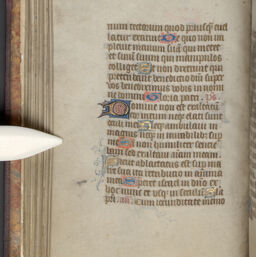 num tectorum quod priusq̄ euel
latur exaruit De quo non im
plevit manum suā qui metet
et sinū suum qui manipulos
colliget Et non dixerunt qui
preteribant benedictio dn̄i super
vos benediximus vobis in nomi
ne domini Gloria patri Ps
Domine non est exaltatū
cor meum neqz elati sunt
oculi mei Neqz ambulavi in
magnis neqz in mirabilibz sup
me Si non humiliter sencie
bam sed exaltavi aīam meam
Sicut ablactatus est sup ma
tre sua ita retributio in anima
mea Speret israel in dn̄o ex
hoc nunc et usqz in secula Gla
pri an̄ Cum iocunditate memo